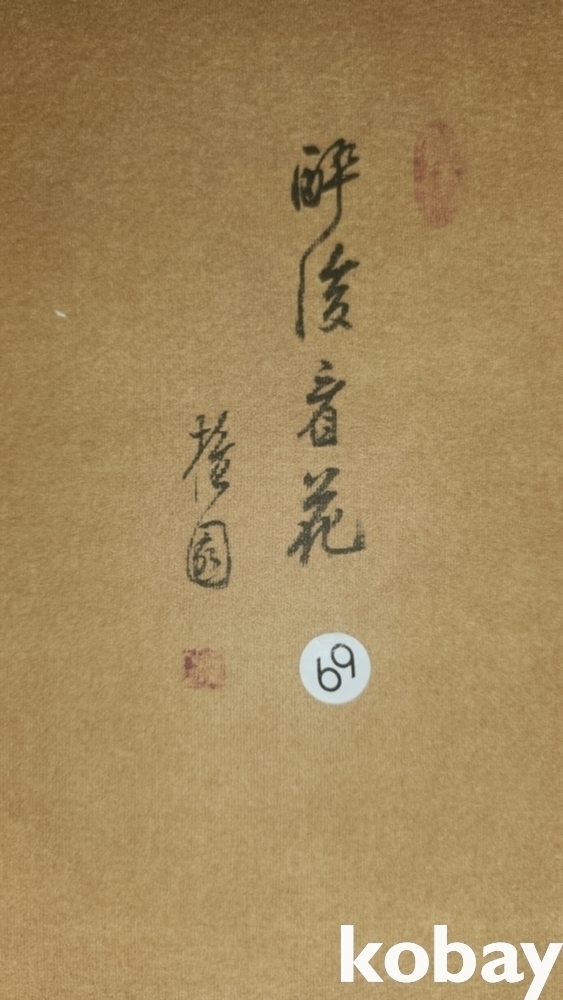 醉後看花
檀園
69
kobay